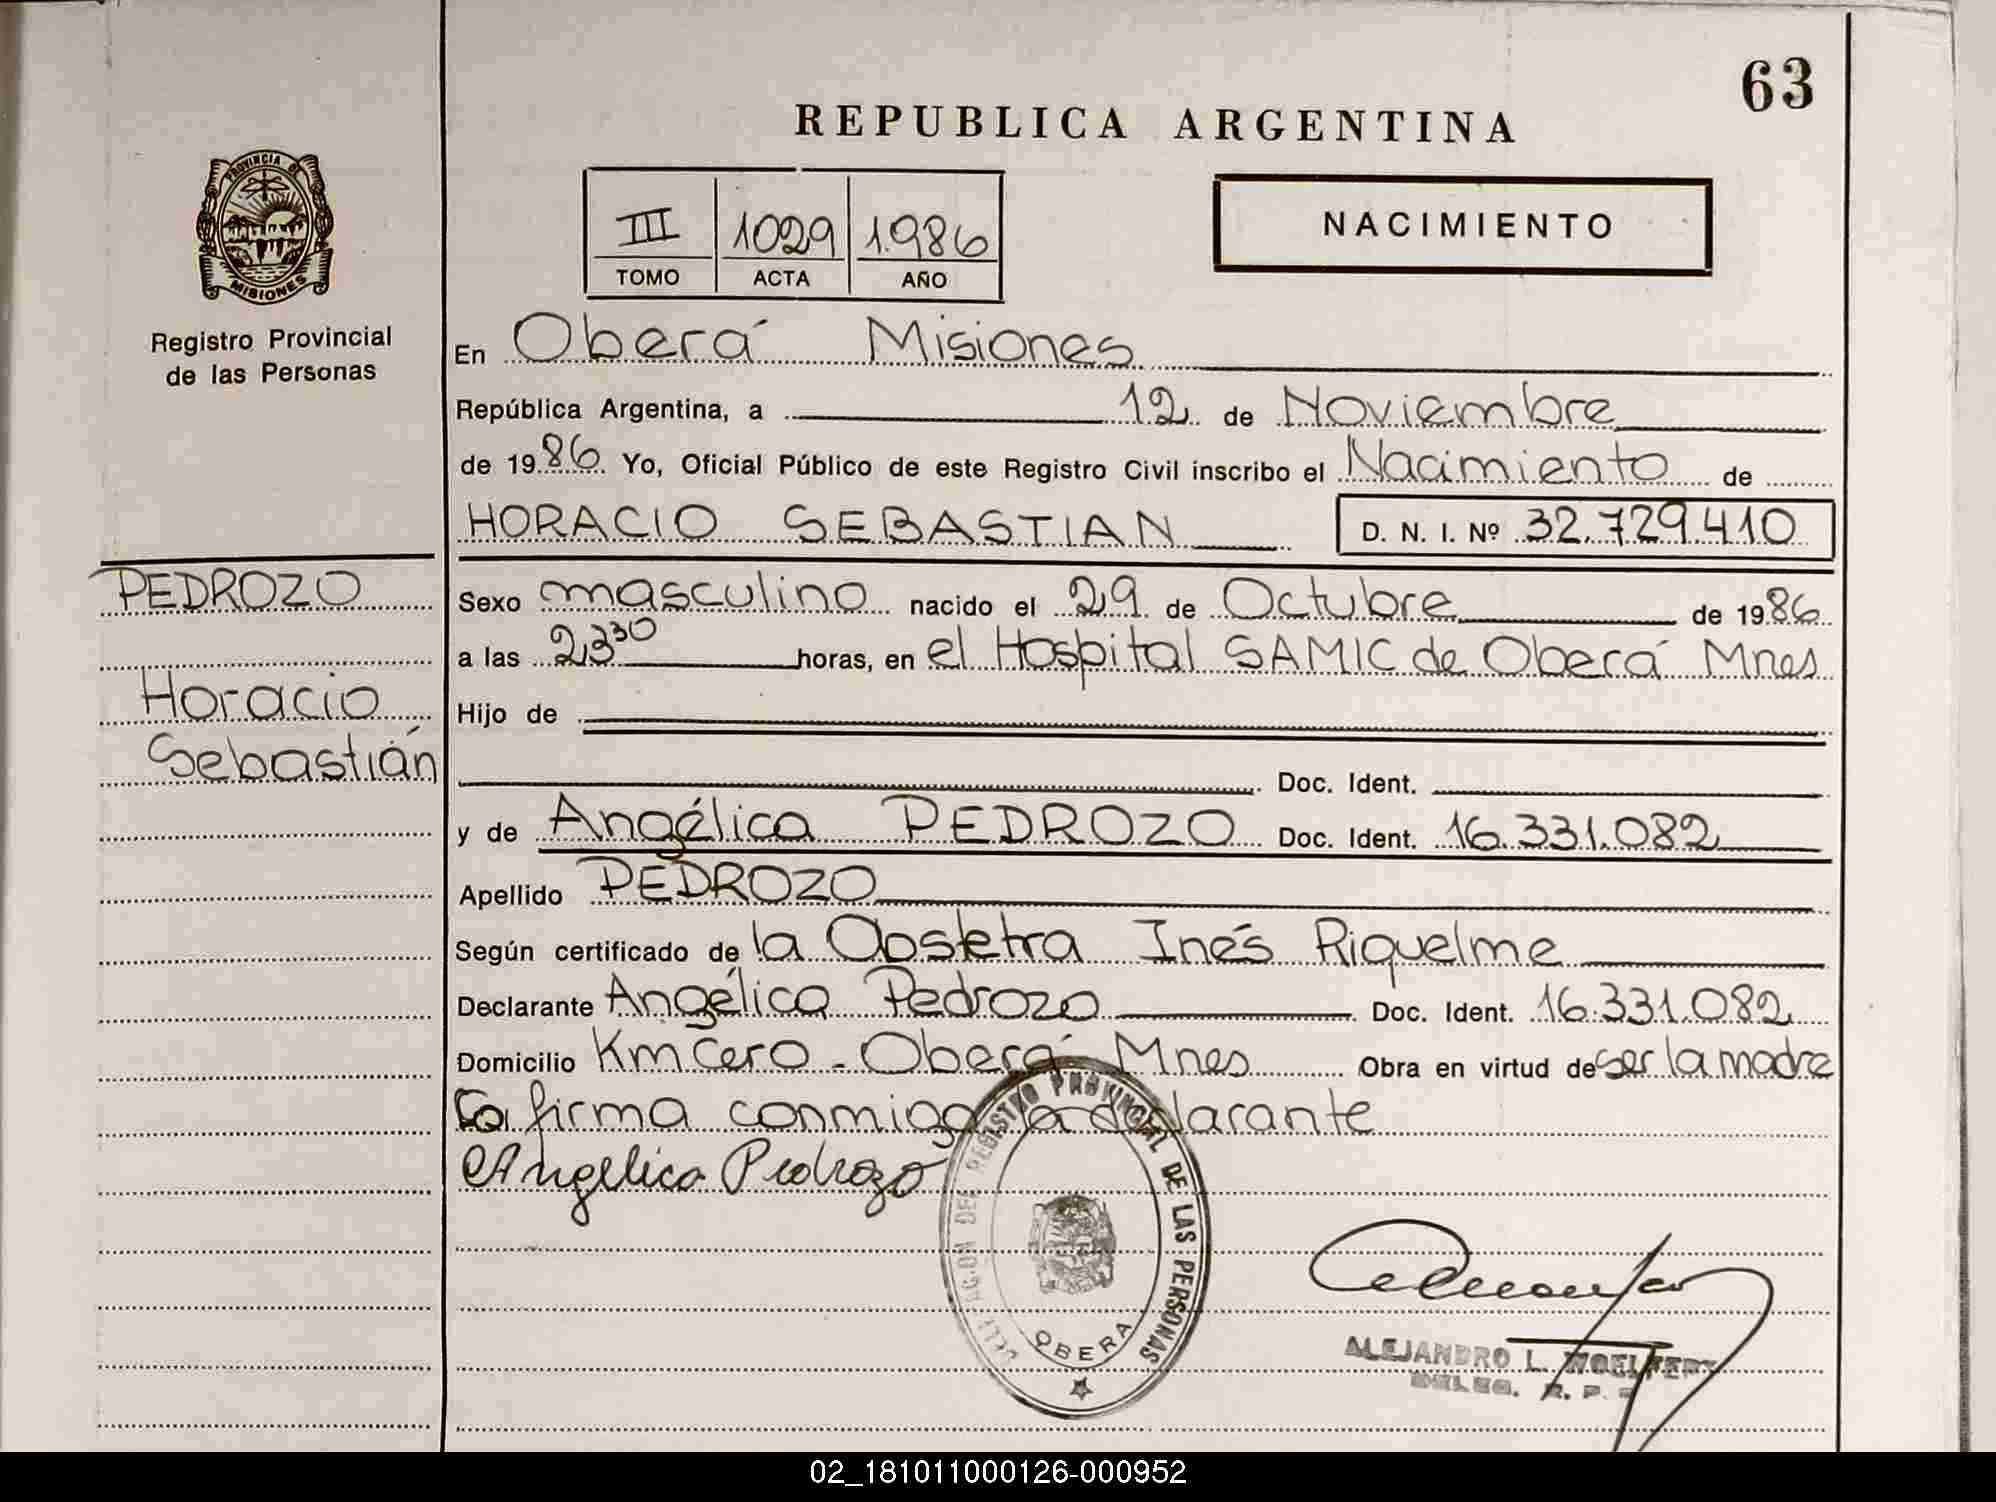 63
REPUBLICA ARGENTINA
PROVINCIA DE
MISIONES
Registro Provincial
de las Personas
III 1029 1.986
TOMO ACTA AÑO
NACIMIENTO
En Oberá Misiones
República Argentina, a 12 de Noviembre
de 1986 Yo, Oficial Público de este Registro Civil inscribo el Nacimiento de
HORACIO SEBASTIAN D. N. I. Nº 32.729.410
PEDROZO
Horacio
Sebastián
Sexo masculino nacido el 29 de Octubre de 1986
a las 23³⁰ horas, en el Hospital SAMIC de Oberá Mnes
Hijo de
Doc. Ident.
y de Angélica PEDROZO Doc. Ident. 16.331.082
Apellido PEDROZO
Según certificado de la Obstetra Inés Riquelme
Declarante Angélica Pedrozo Doc. Ident. 16.331.082
Domicilio Km Cero - Oberá Mnes Obra en virtud de ser la madre
firma conmigo la declarante
Angelica Pedrozo
DELEGACION DEL REGISTRO PROVINCIAL DE LAS PERSONAS
OBERA
ALEJANDRO L.
DELEG. R. P.
02_181011000126-000952